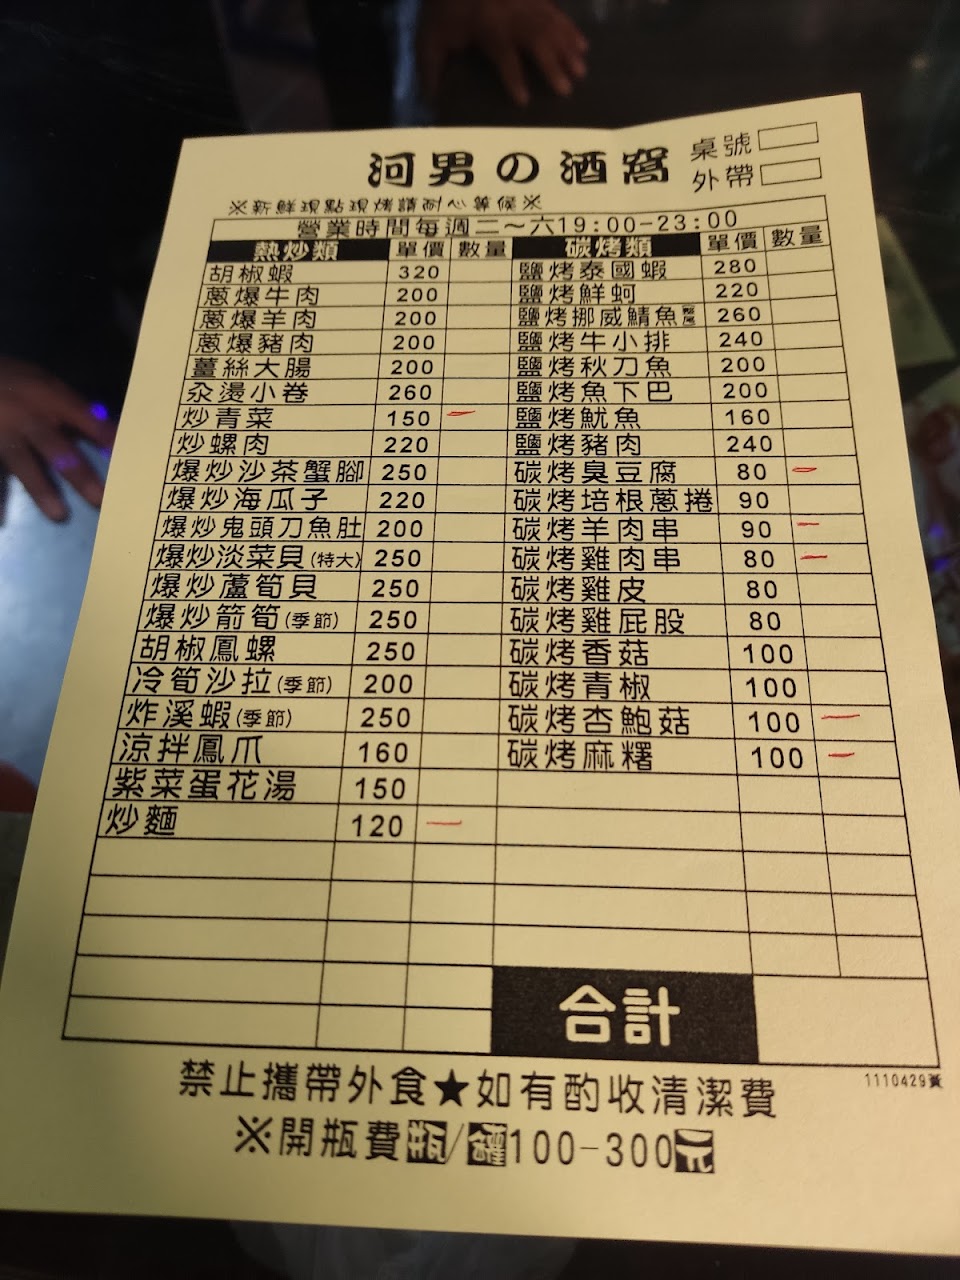 河男の酒窩
桌號
外帶
※新鮮現點現烤請耐心等候※
營業時間每週二～六19:00-23:00
熱炒類 單價 數量 碳烤類 單價 數量
胡椒蝦 320 鹽烤泰國蝦 280
蔥爆牛肉 200 鹽烤鮮蚵 220
蔥爆羊肉 200 鹽烤挪威鯖魚 260
蔥爆豬肉 200 鹽烤牛小排 240
薑絲大腸 200 鹽烤秋刀魚 200
汆燙小卷 260 鹽烤魚下巴 200
炒青菜 150 一 鹽烤魷魚 160
炒螺肉 220 鹽烤豬肉 240
爆炒沙茶蟹腳 250 碳烤臭豆腐 80 一
爆炒海瓜子 220 碳烤培根蔥捲 90
爆炒鬼頭刀魚肚 200 碳烤羊肉串 90 一
爆炒淡菜貝(特大) 250 碳烤雞肉串 80 一
爆炒蘆筍貝 250 碳烤雞皮 80
爆炒箭筍(季節) 250 碳烤雞屁股 80
胡椒鳳螺 250 碳烤香菇 100
冷筍沙拉(季節) 200 碳烤青椒 100
炸溪蝦(季節) 250 碳烤杏鮑菇 100 一
涼拌鳳爪 160 碳烤麻糬 100 一
紫菜蛋花湯 150
炒麵 120 一
合計
1110429黃
禁止攜帶外食★如有酌收清潔費
※開瓶費瓶/罐100-300元